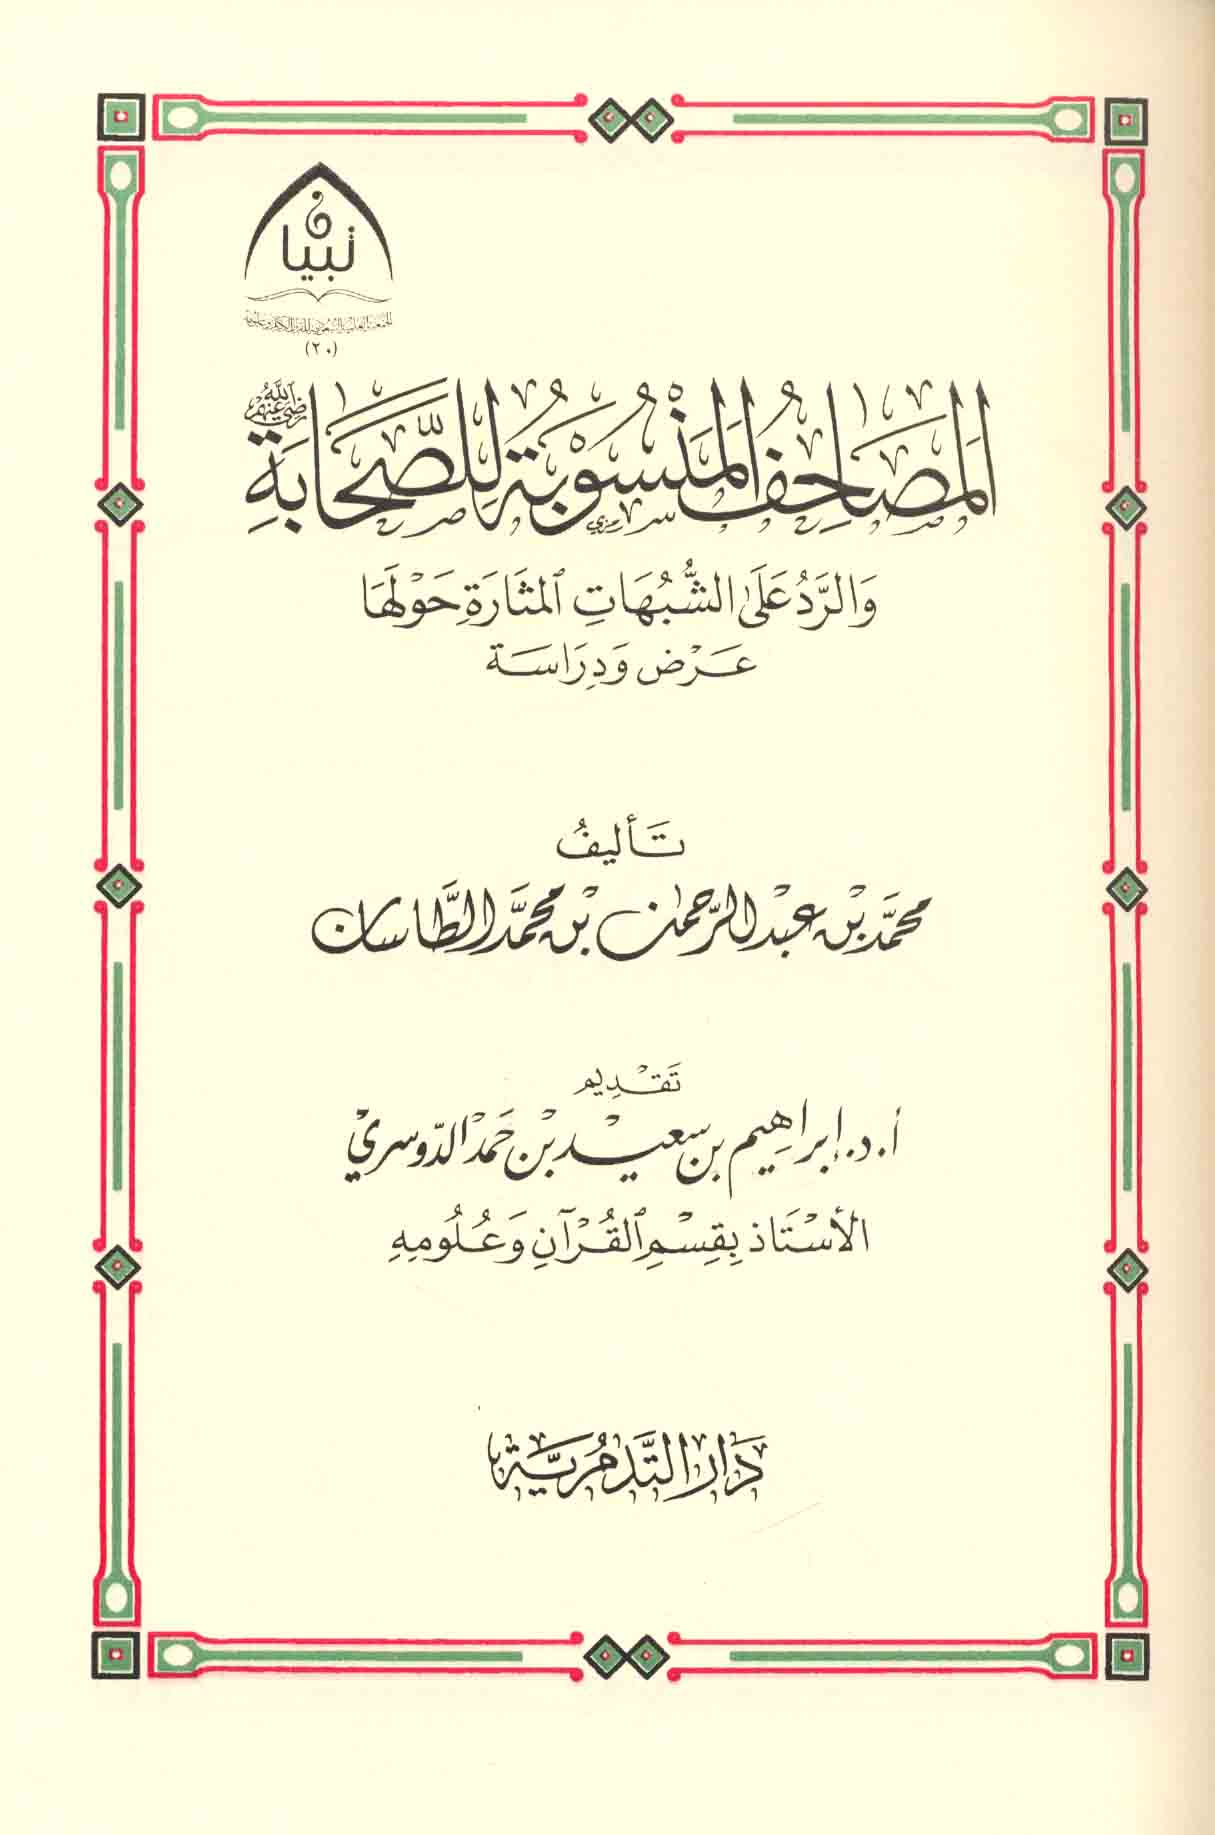 تبيان
الجمعية العلمية السعودية للقرآن الكريم وعلومه
(٢٠)
المَصَاحِفُ المَنْسُوبَةُ لِلصَّحَابَةِ رضي الله عنهم
وَالرَّدُّ عَلَى الشُّبُهَاتِ المُثَارَةِ حَوْلَهَا
عَرْض وَدِرَاسَة
تَأليفُ
محمّد بْن عبْد الرّحمٰن بْن محمَّد الطَّاسَان
تَقْدِيم
أ. د. إبراهيم بن سعيد بْن حَمد الدّوسريْ
الأسْتَاذ بِقِسْمِ القُرْآنِ وَعُلُومِهِ
دَار التَّدمُريَّة